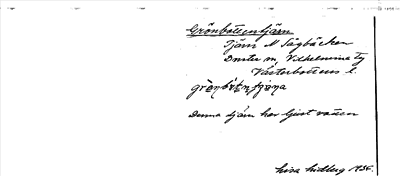 Grönbottentjärn
Tjärn N Sågbäcken
Dorotea m, Vilhelmina tg
Västerbottens l.
grö̀nbòt̀ntjøṇa
Denna tjärn har ljust vatten
Lisa Lidberg 1935.